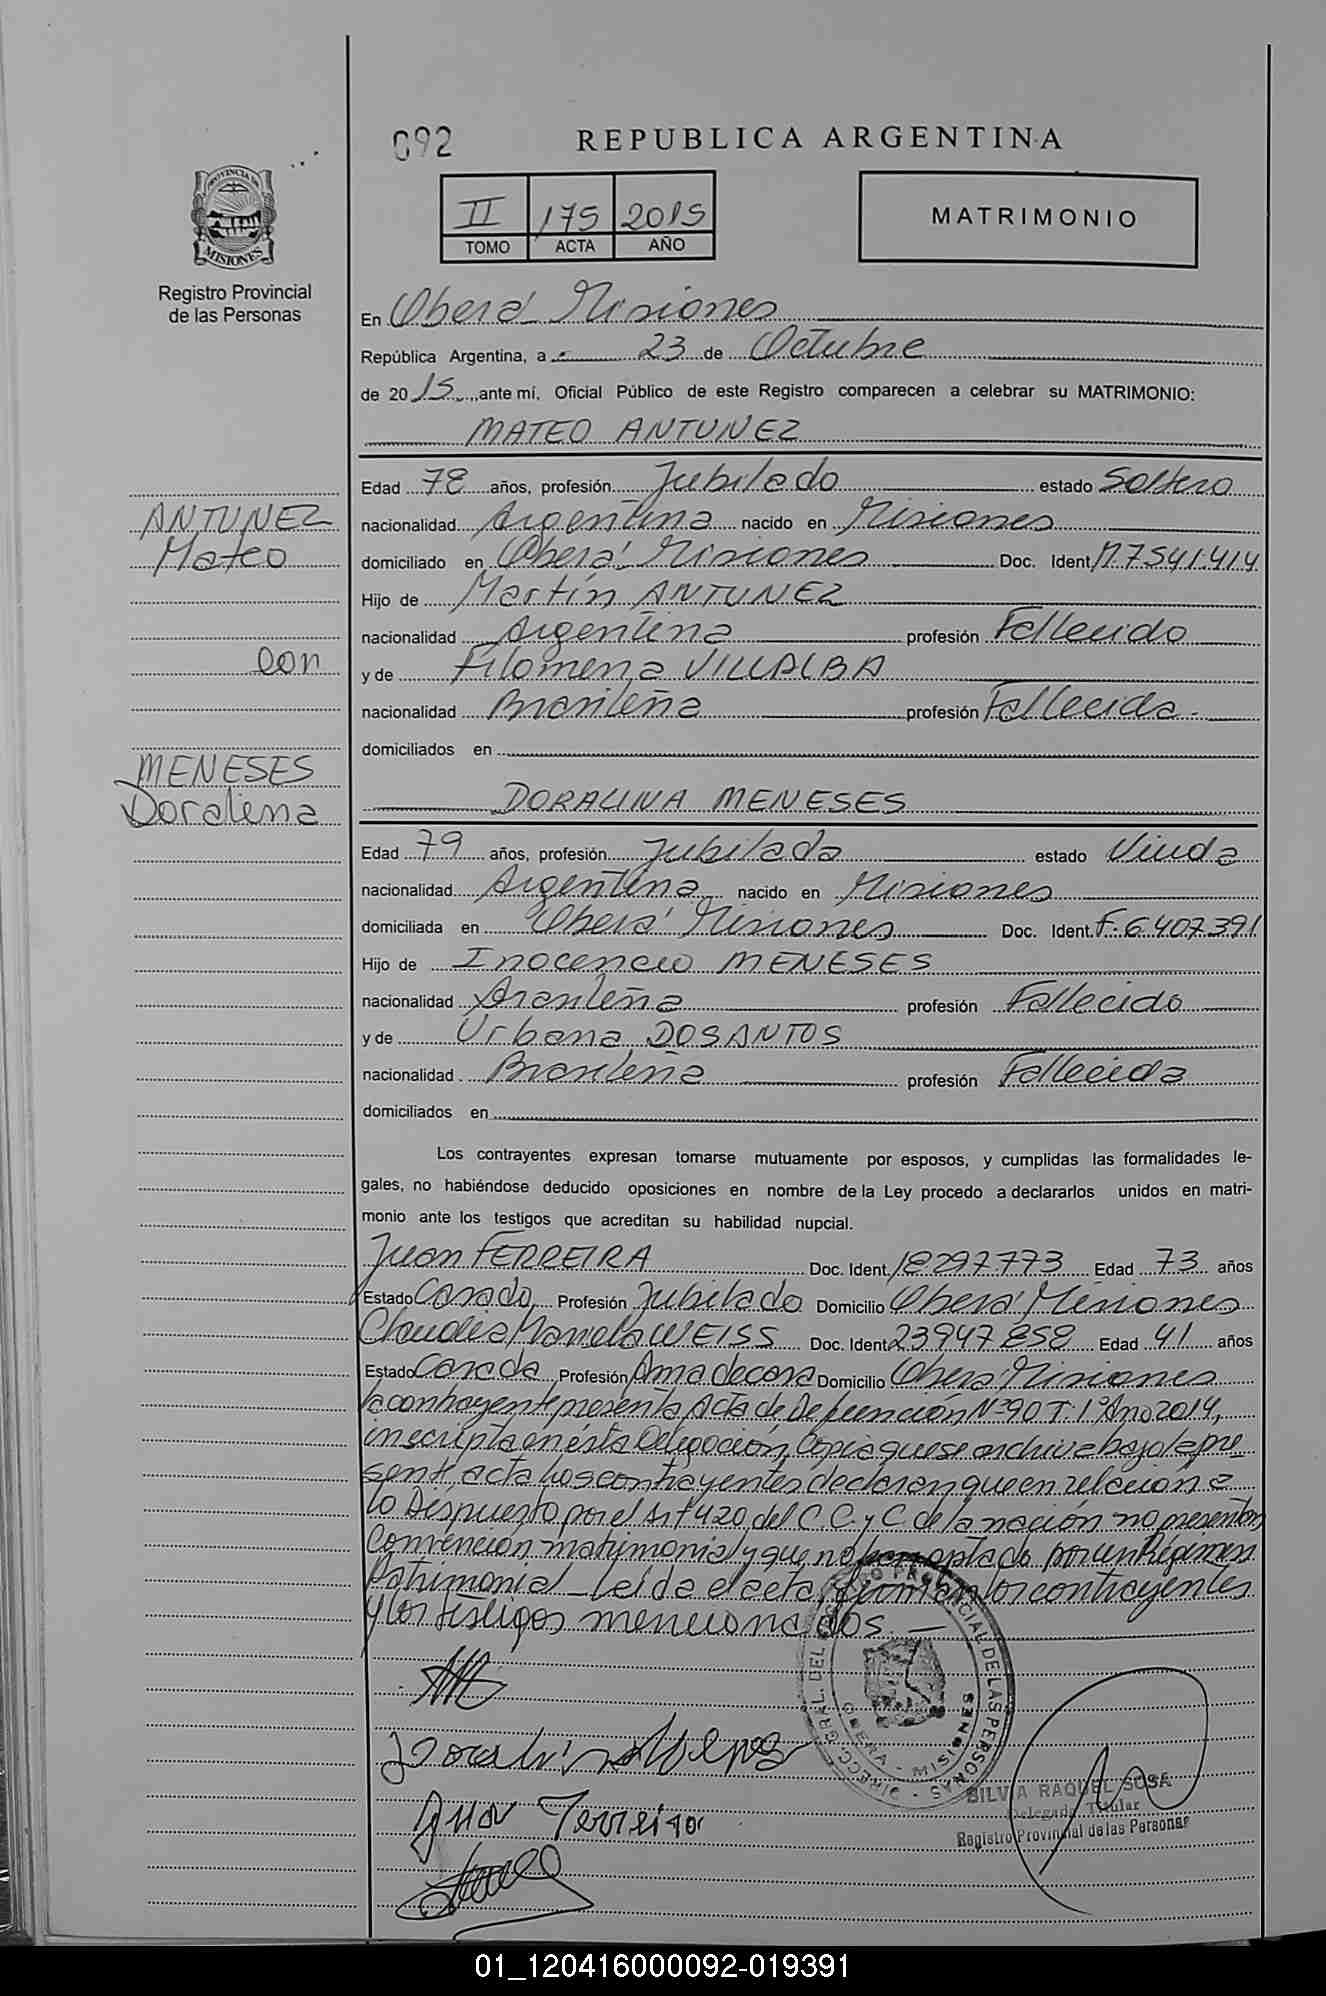 092
REPUBLICA ARGENTINA
II 175 2015
TOMO ACTA AÑO
MATRIMONIO
PROVINCIA DE
MISIONES
Registro Provincial
de las Personas
En Oberá Misiones
República Argentina, a 23 de Octubre
de 2015, ante mí, Oficial Público de este Registro comparecen a celebrar su MATRIMONIO:
MATEO ANTUNEZ
Edad 78 años, profesión Jubilado estado Soltero
ANTUNEZ
Mateo
con
MENESES
Doralina
nacionalidad Argentina nacido en Misiones
domiciliado en Oberá Misiones Doc. Ident. M.7541.414
Hijo de Martín ANTUNEZ
nacionalidad Argentina profesión Fallecido
y de Filomena VILLALBA
nacionalidad Brasileña profesión Fallecida.
domiciliados en
DORALINA MENESES
Edad 79 años, profesión Jubilada estado Viuda
nacionalidad Argentina nacido en Misiones
domiciliada en Oberá Misiones Doc. Ident. F.6.407.391
Hijo de Inocencio MENESES
nacionalidad Brasileña profesión Fallecido
y de Urbana DOSANTOS
nacionalidad Brasileña profesión Fallecida
domiciliados en
Los contrayentes expresan tomarse mutuamente por esposos, y cumplidas las formalidades le-
gales, no habiéndose deducido oposiciones en nombre de la Ley procedo a declararlos unidos en matri-
monio ante los testigos que acreditan su habilidad nupcial.
Juan FERREIRA Doc. Ident. 18297773 Edad 73 años
Estado Casado Profesión Jubilado Domicilio Oberá Misiones
Claudia Mariela WEISS Doc. Ident. 23947858 Edad 41 años
Estado Casada Profesión Ama de casa Domicilio Oberá Misiones
la contrayente presenta Acta de Defunción Nº 90 T. 1º Año 2014,
inscripta en ésta Delegación, Copia que se archiva bajo la pre-
sente acta los contrayentes declaran que en relación a
lo Dispuesto por el Art 420 del C.C. y C. de la nación no presentan
Convención matrimonial y que no han optado por un Régimen
Patrimonial _ Leída el acta, firman los contrayentes
y los testigos mencionados. _
DIRECC. GRAL. DEL REGISTRO PROVINCIAL DE LAS PERSONAS
OBERA - MISIONES
Juan Ferreira
SILVIA RAQUEL SOSA
Delegada Titular
Registro Provincial de las Personas
01_120416000092-019391